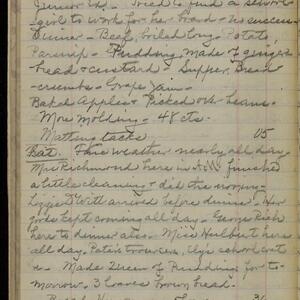 Junior Ex. - Tried to find a school
girl to work for her board - no success
Dinner - Beef, boiled long - Potato,
Parsnip - Pudding made of ginger
bread & custard - Supper Bread
crumbs - Grape Jam -
Baked Apples & Picked over beans.
Mrs Molding - 48 cts.
Matting tacks 05
Sat. Fair weather nearly all day
Mrs Richmond here in A.M. finished
a little cleaning & did the
Lizzie & Will arrived before dinner - Her
kept all day - George Rich
here to dinner also. Miss Hulbert here
all day. Pete's trousers,
Made Queen of Pudding for to-
morrow. 3 loaves brown bread.
Bread